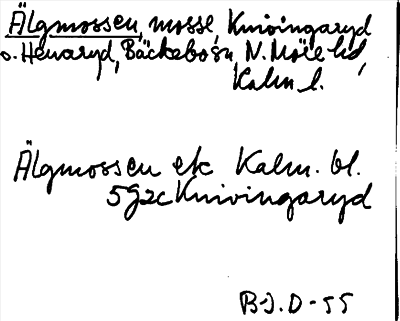 Älgmossen, mosse, Knivingaryd
o. Henaryd, Bäckebo sn, N. Möre hd,
Kalm l.
Älgmossen ek Kalm. bl.
5g2c Knivingaryd
BJ.D-55